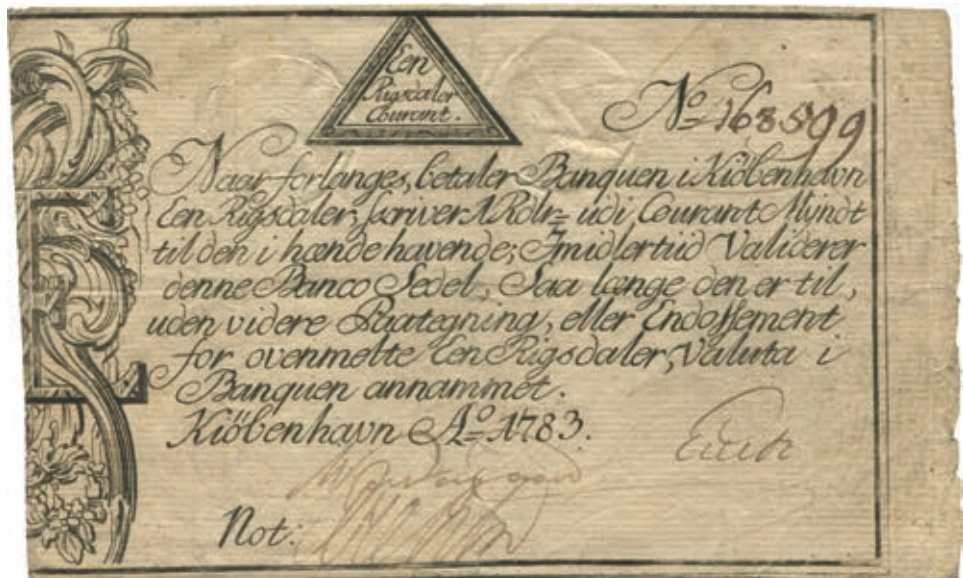 Een
Rigsdaler
Courant.
No 168599
Naar forlanges, betaler Banquen i Kiöbenhavn
Een Rigsdaler, skriver 1 Rdlr= udi Courant Myndt
til den i hænde havende; Imidlertiid Validerer
denne Banco Sedel, Saa længe den er til,
uden videre Paategning, eller Endossement
for ovenmelte Een Rigsdaler, Valuta i
Banquen annammet.
Kiöbenhavn Ao 1783.
Not: